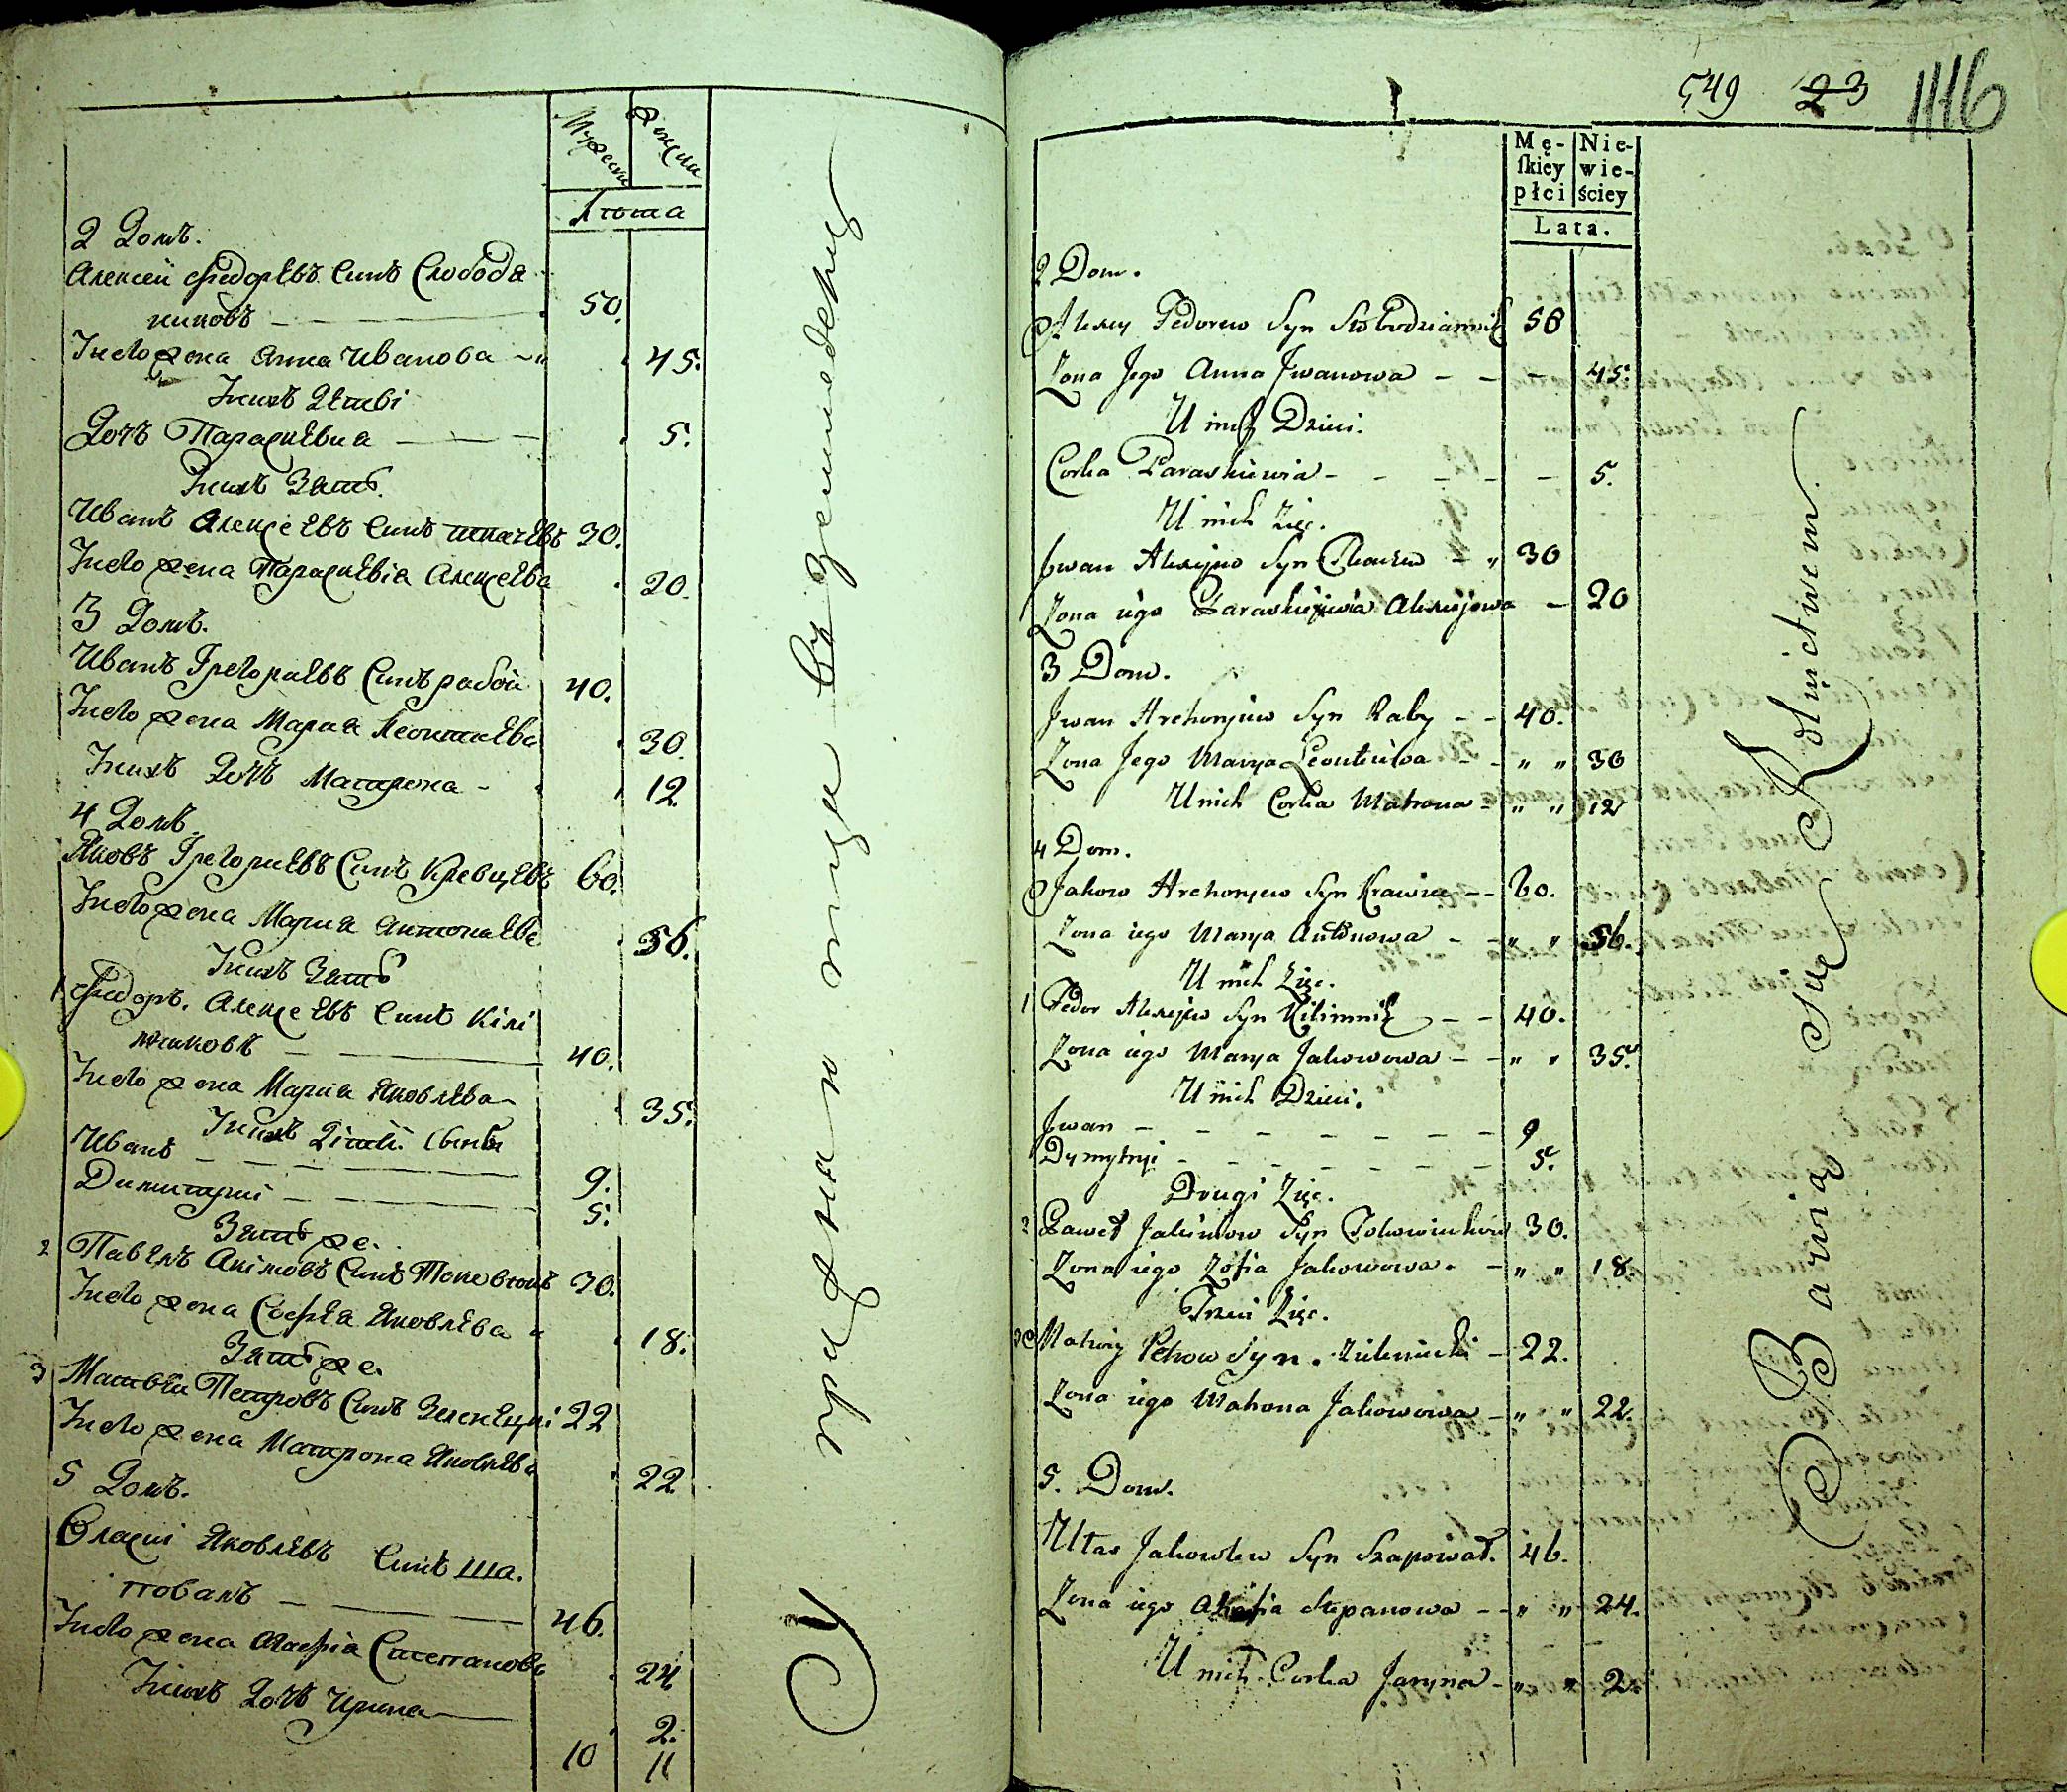 Мужески
Женски
Лѣта
2 Домъ.
Алексей Федорѣвъ Синъ Слобода
никовъ — 50.
У него жена Анна Иванова 45.
У нихъ дѣти
Дочъ Параскѣвиа — — — 5.
У нихъ Зять.
Иванъ Алексеѣвъ Синъ ткачѣвъ 30.
У него жена Параскѣвіа Алексеѣва 20.
3 Домъ.
Иванъ Грегориѣвъ Синъ рабой 40.
У него жена Мариа Леонтиѣва 30.
У нихъ Дочъ Матрона - 12
4 Домъ.
Яковъ Грегориѣвъ Синъ Кревцѣвъ 60.
У него жена Мариа Антониѣва 56.
У нихъ Зять
1 Федоръ Алексеѣвъ Синъ Килі
мниковъ — 40.
У него жена Мариа Яковлѣва 35.
У нихъ Діти: Синъ
Иванъ — — — 9.
Димитрий — — 5.
Зять же.
2 Павѣлъ Акімовъ Синъ 30.
У него жена Софѣа Яковлѣва 18.
Зять же.
3 Матвѣй Петровъ Синъ Зеленѣцкі 22
У него жена Матрона Яковлѣва 22
5 Домъ.
Власиі Яковлѣвъ Синъ Ша.
повалъ — 46.
У него жена Агафіа Степанова 24
У нихъ Дочъ Ирина 2.
10 11
Упражняются въ земледелии
549 23 1116
Mę- Nie-
ſkiey wie-
płci ściey
Lata.
2 Dom.
Alexey Fedorew Syn Słobodziannik 50
Zona Jego Anna Jwanowa - - - 45.
U nich Dzieci.
Corka Paraskiewia - - - - - 5.
U nich Zięć.
Jwan Alexijew Syn Tkaczew - " 30
Zona iego Paraskijewia Alexijowa - 20
3 Dom.
Jwan Hrehoryiew Syn Raby - - 40.
Zona Jego Marya Leontiewa - - " " 30
U nich Corka Matrona - " " 12
4 Dom.
Jakow Hrehoryew Syn Krawiec - - 60.
Zona iego Marya Antonowa - - " " 56.
U nich Zięć.
1 Fedor Alexijew Syn Kilimnik - - 40.
Zona iego Marya Jakowowa - - " " 35.
U nich Dzieci.
Jwan - - - - - - - 9
Dymytryi - - - - - - 5.
Drugi Zięć.
2 Paweł Jakimow Syn 30.
Zona iego Zofia Jakowowa - - " " 18.
Trzeci Zięć.
3 Matwiy Petrow Syn. Zieleniecki - 22.
Zona iego Matrona Jakowowa - " " 22.
5. Dom.
Ułas Jakowlew Syn Szapował. 46.
Zona iego Ahafia Stepanowa - - " " 24.
U nich Corka Jaryna - " " 2.
Bawią się Rolnictwem.